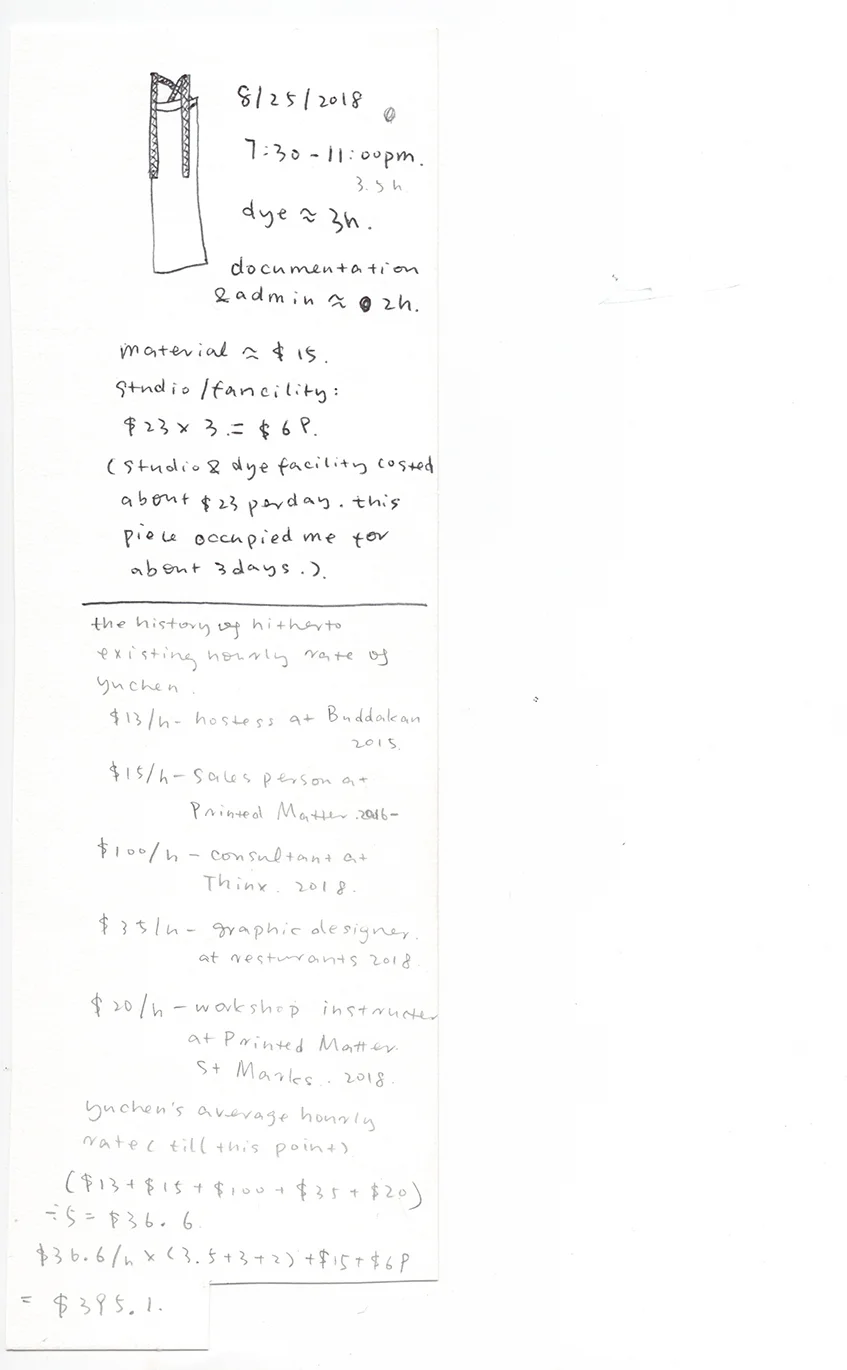 8/25/2018
7:30 - 11:00pm.
3.5h
dye ≈ 3h.
documentation
& admin ≈ 2h.
material ≈ $ 15.
studio / fancility:
$ 23 x 3 = $ 69.
( studio & dye facility costed
about $ 23 per day. this
piece occupied me for
about 3 days. ).
the history of hitherto
existing hourly rate of
yuchen.
$13/h - hostess at Buddakan
2015.
$15/h - sales person at
Printed Matter. 2016-
$100/h - consultant at
Thinx. 2018.
$ 35/h - graphic designer.
at resturants 2018.
$ 20/h - workshop instructer
at Printed Matter
St Marks. 2018.
yuchen's average hourly
rate ( till this point )
($13 + $15 + $100 + $35 + $20)
÷5 = $36.6
$36.6/h x (3.5+3+2) + $15 + $69
= $395.1.